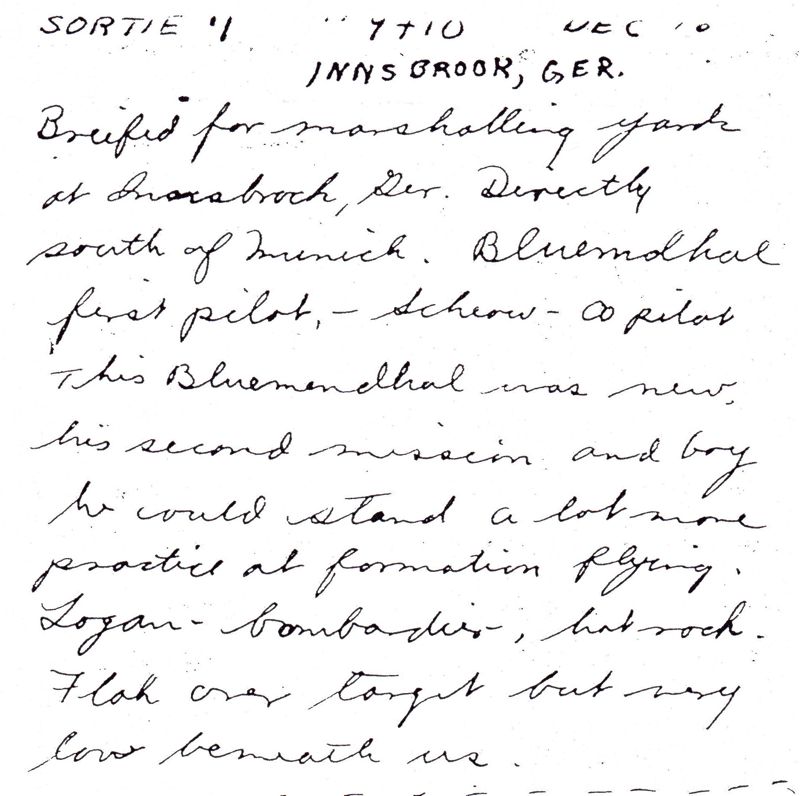 SORTIE 4 " 9+10 DEC
INNSBROOK, GER.
Breifed for marshalling yards
at Innsbrock, Ger. Directly
south of Munich. Bluemdhal
first pilot, - Scherow - Co pilot
This Bluemendhal was new,
his second mission and boy
he could stand a lot more
practice at formation flying.
Logan - bombardier, hot rock.
Flak over target but very
low beneath us.